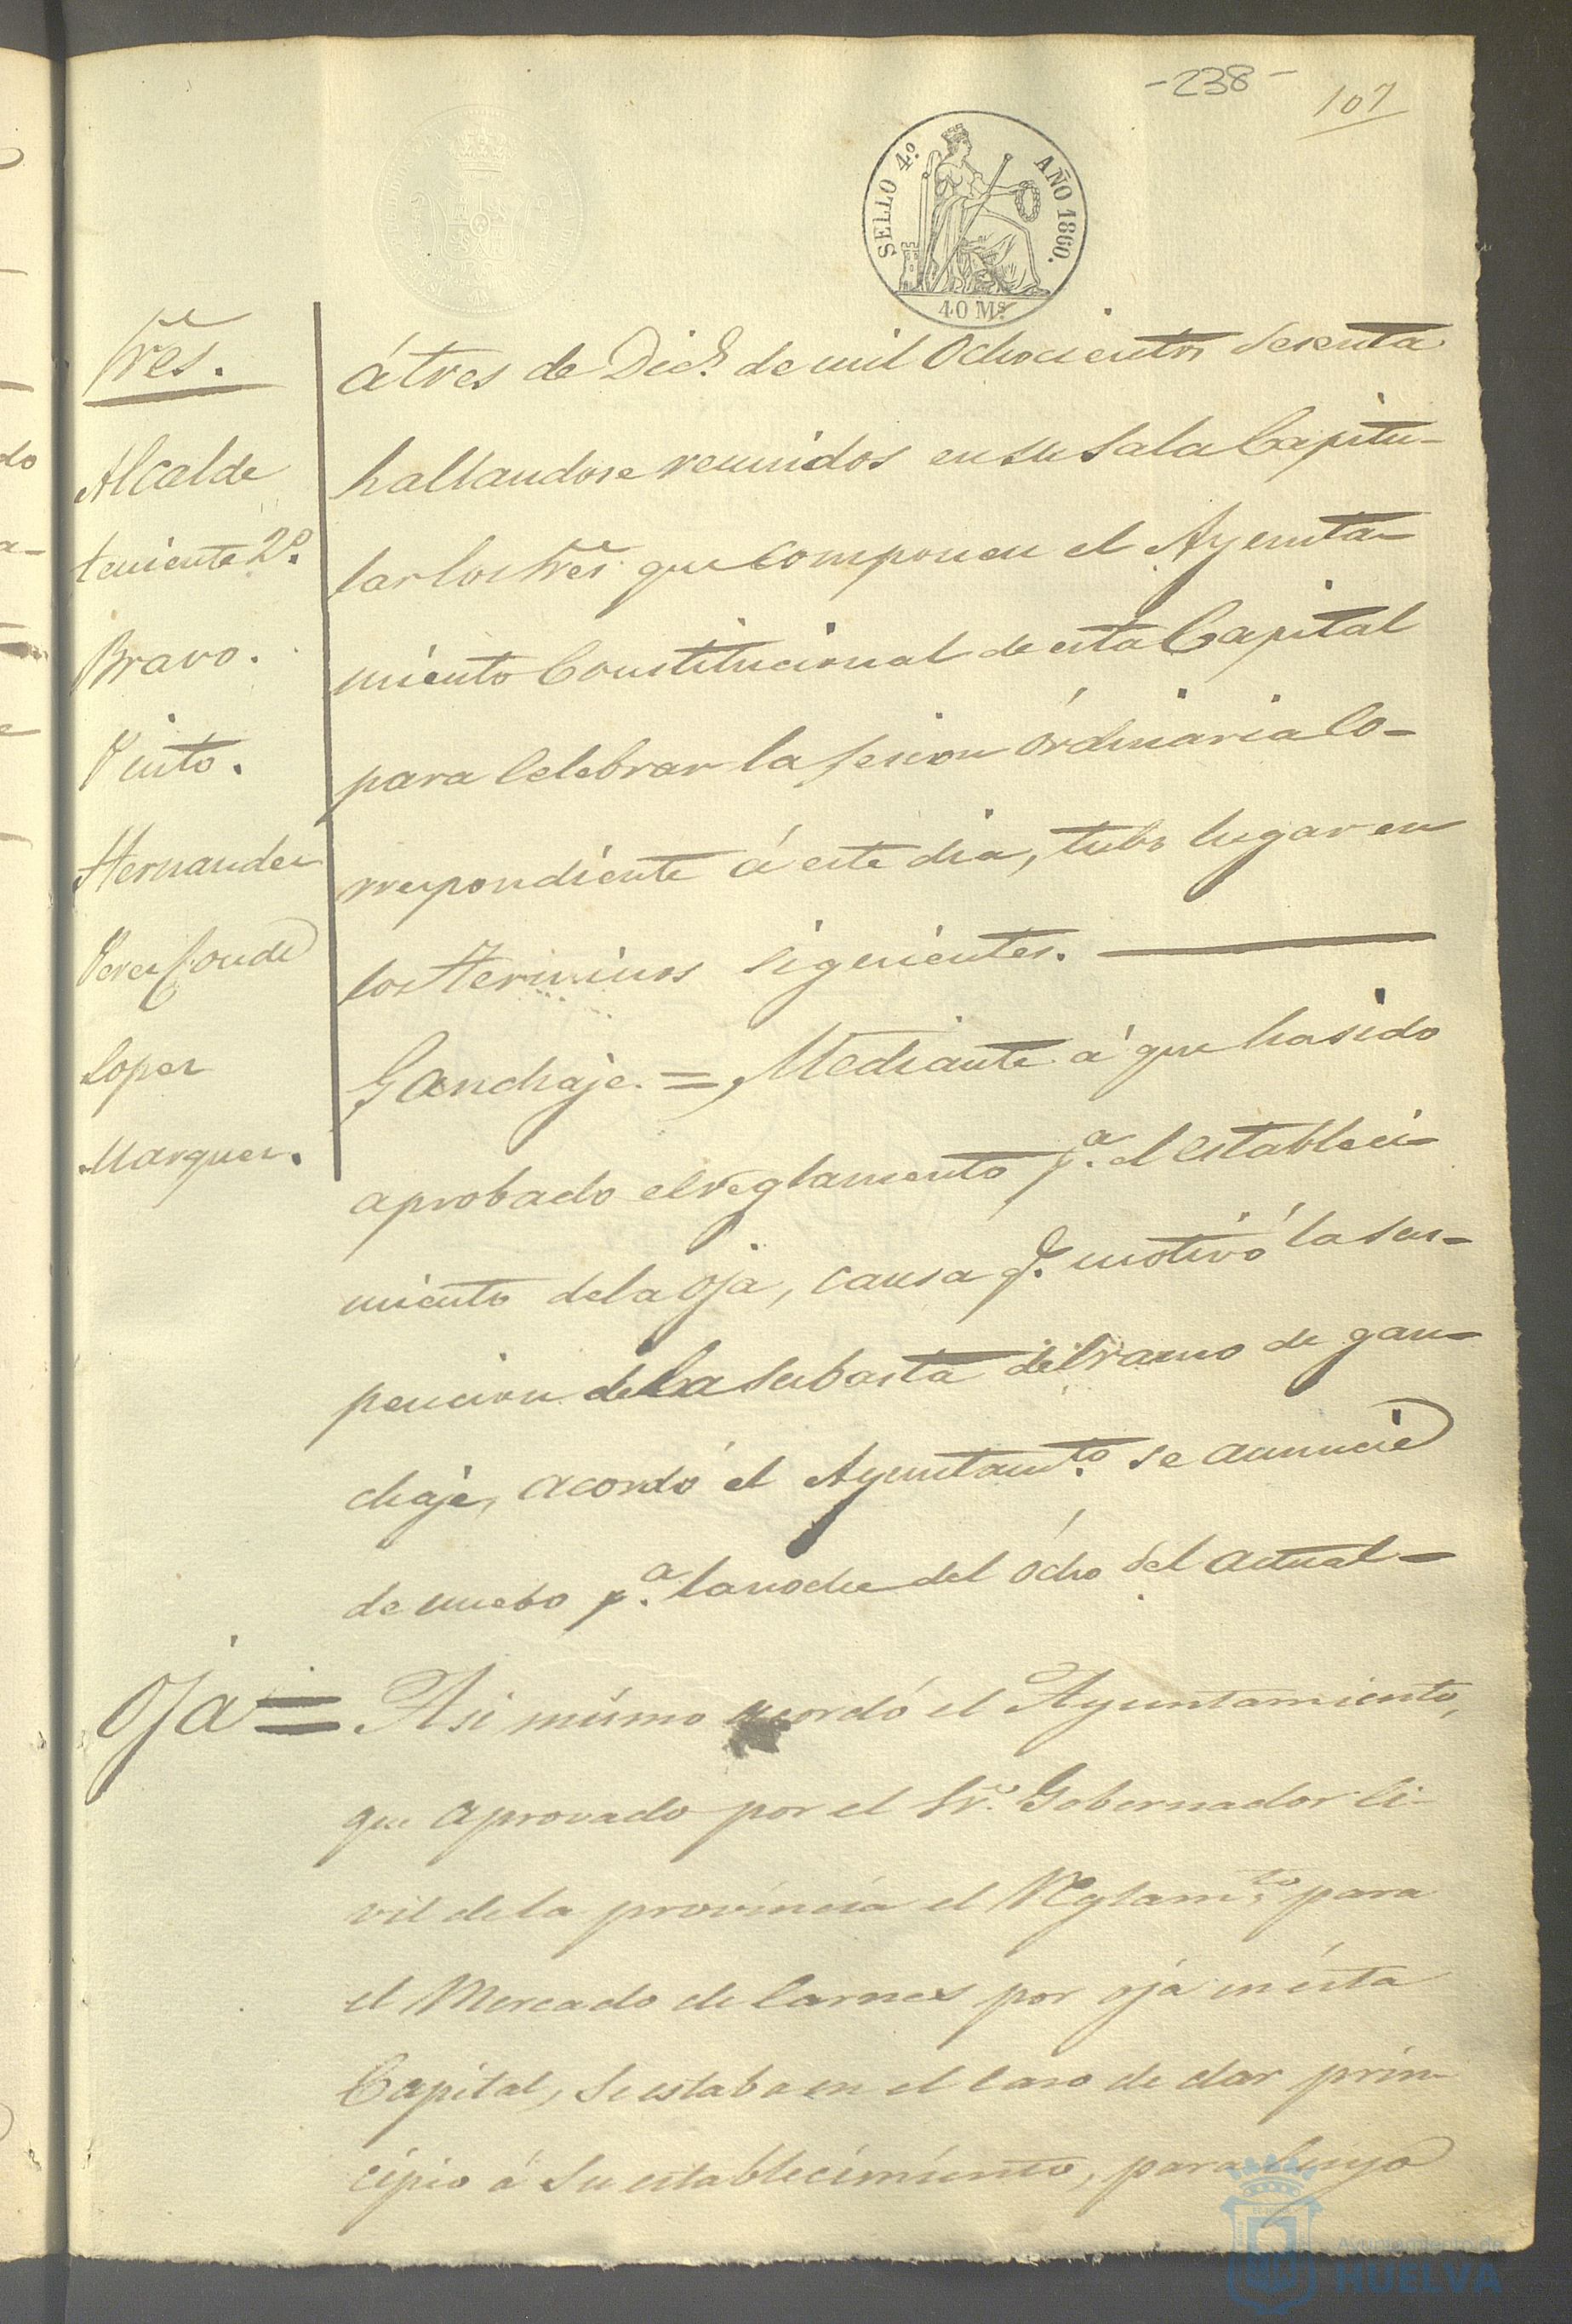 -238-
107
SELLO 4.º AÑO 1860.
40 Ms.
Sres.
Alcalde
teniente 2º.
Bravo.
Pinto.
Hernandez
Perez Conde
Lopez
Marquez.
á tres de Dice. de mil Ochocientos Sesenta
hallandose reunidos en su Sala Capitu-
lar los Sres. que componen el Ayunta-
miento Constitucional de esta Capital
para Celebrar la sesion Órdinaria Co-
rrespondiente á este dia, tubo lugar en
los Terminos sigerientes.
Ganchaje. = Mediante á que ha sido
aprobado el reglamento pa. el estableci-
miento de la oja, causa q. motivó la sus-
pencion de la Subasta del ramo de gan-
chaje, acordó el Ayuntamto. se anuncie
de nuebo pa. la noche del Ócho del actual-
Oja = Asi mismo acordó el Ayuntamiento,
que aprovado por el Sr. Gobernador Ci-
vil de la provincia el Reglamto. para
el Mercado de Carnes por oja en ésta
Capital, se estaba en el Caso de dar prin-
cipio á Su establecimiento, para Cuyo
Ayuntamiento de
HUELVA